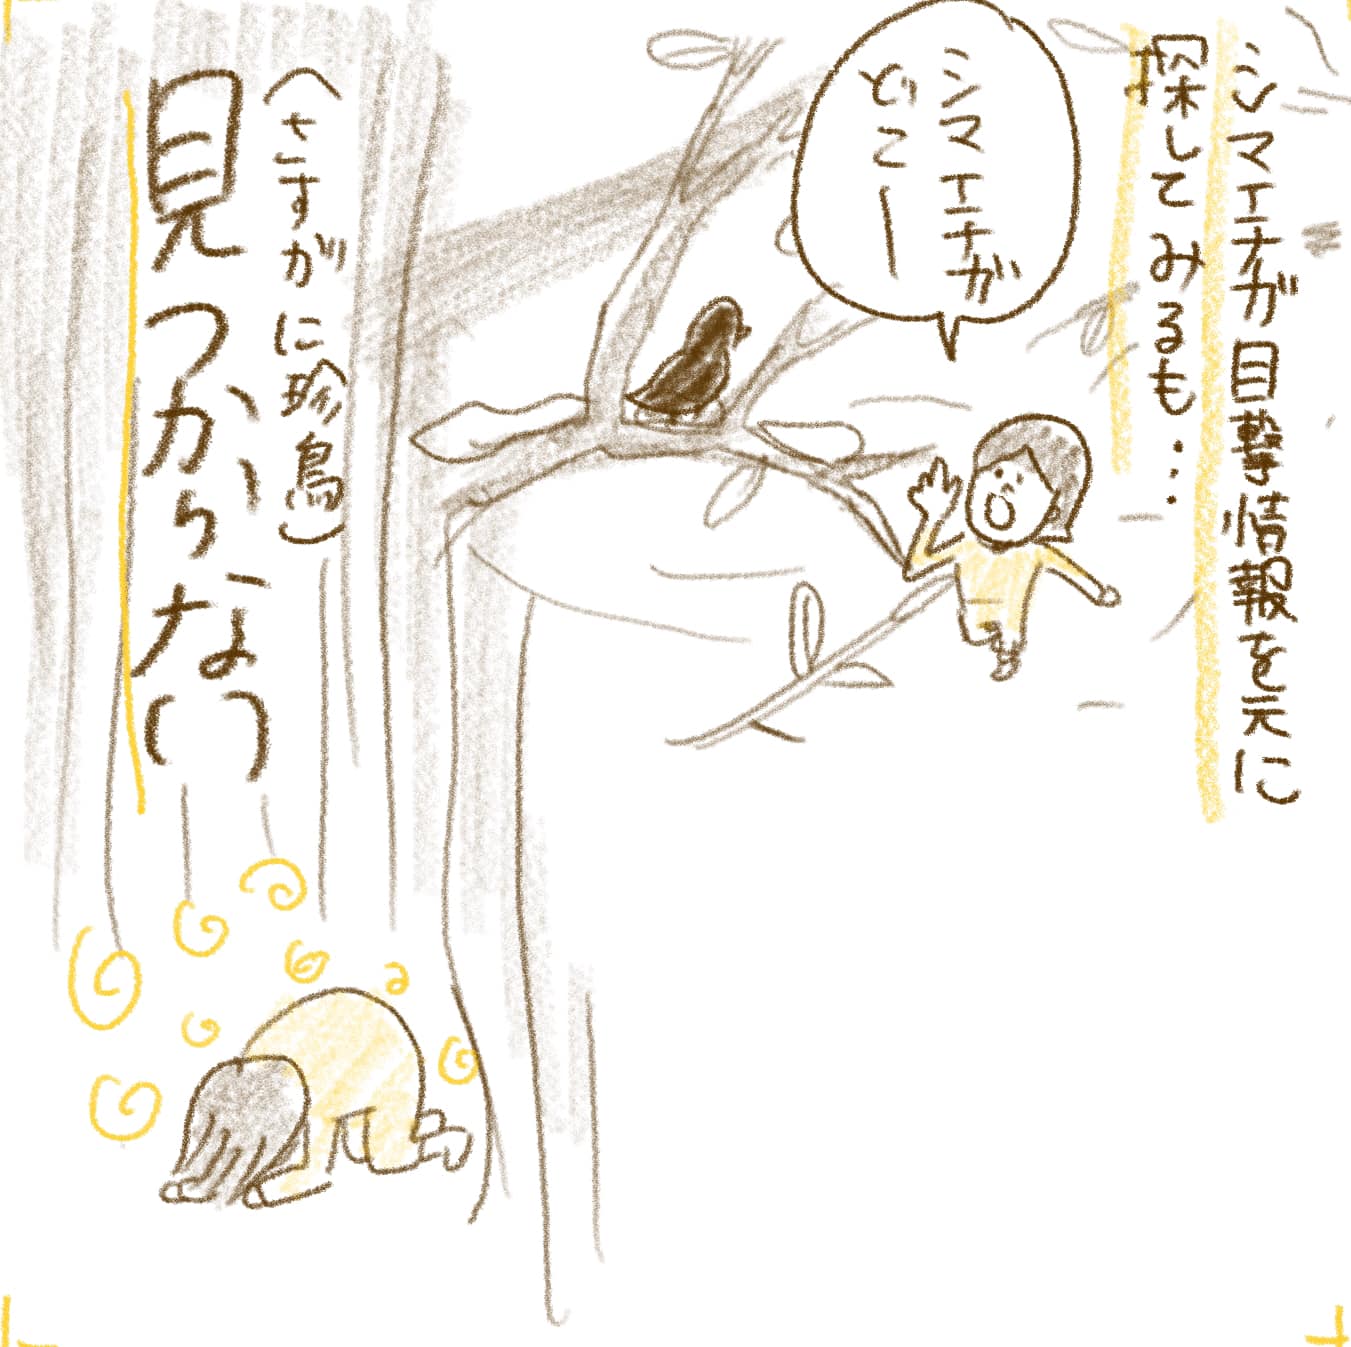 シマエナガ目撃情報を元に
探してみるも…
シマエナガ
どこー
(さすがに珍鳥)
見つからない